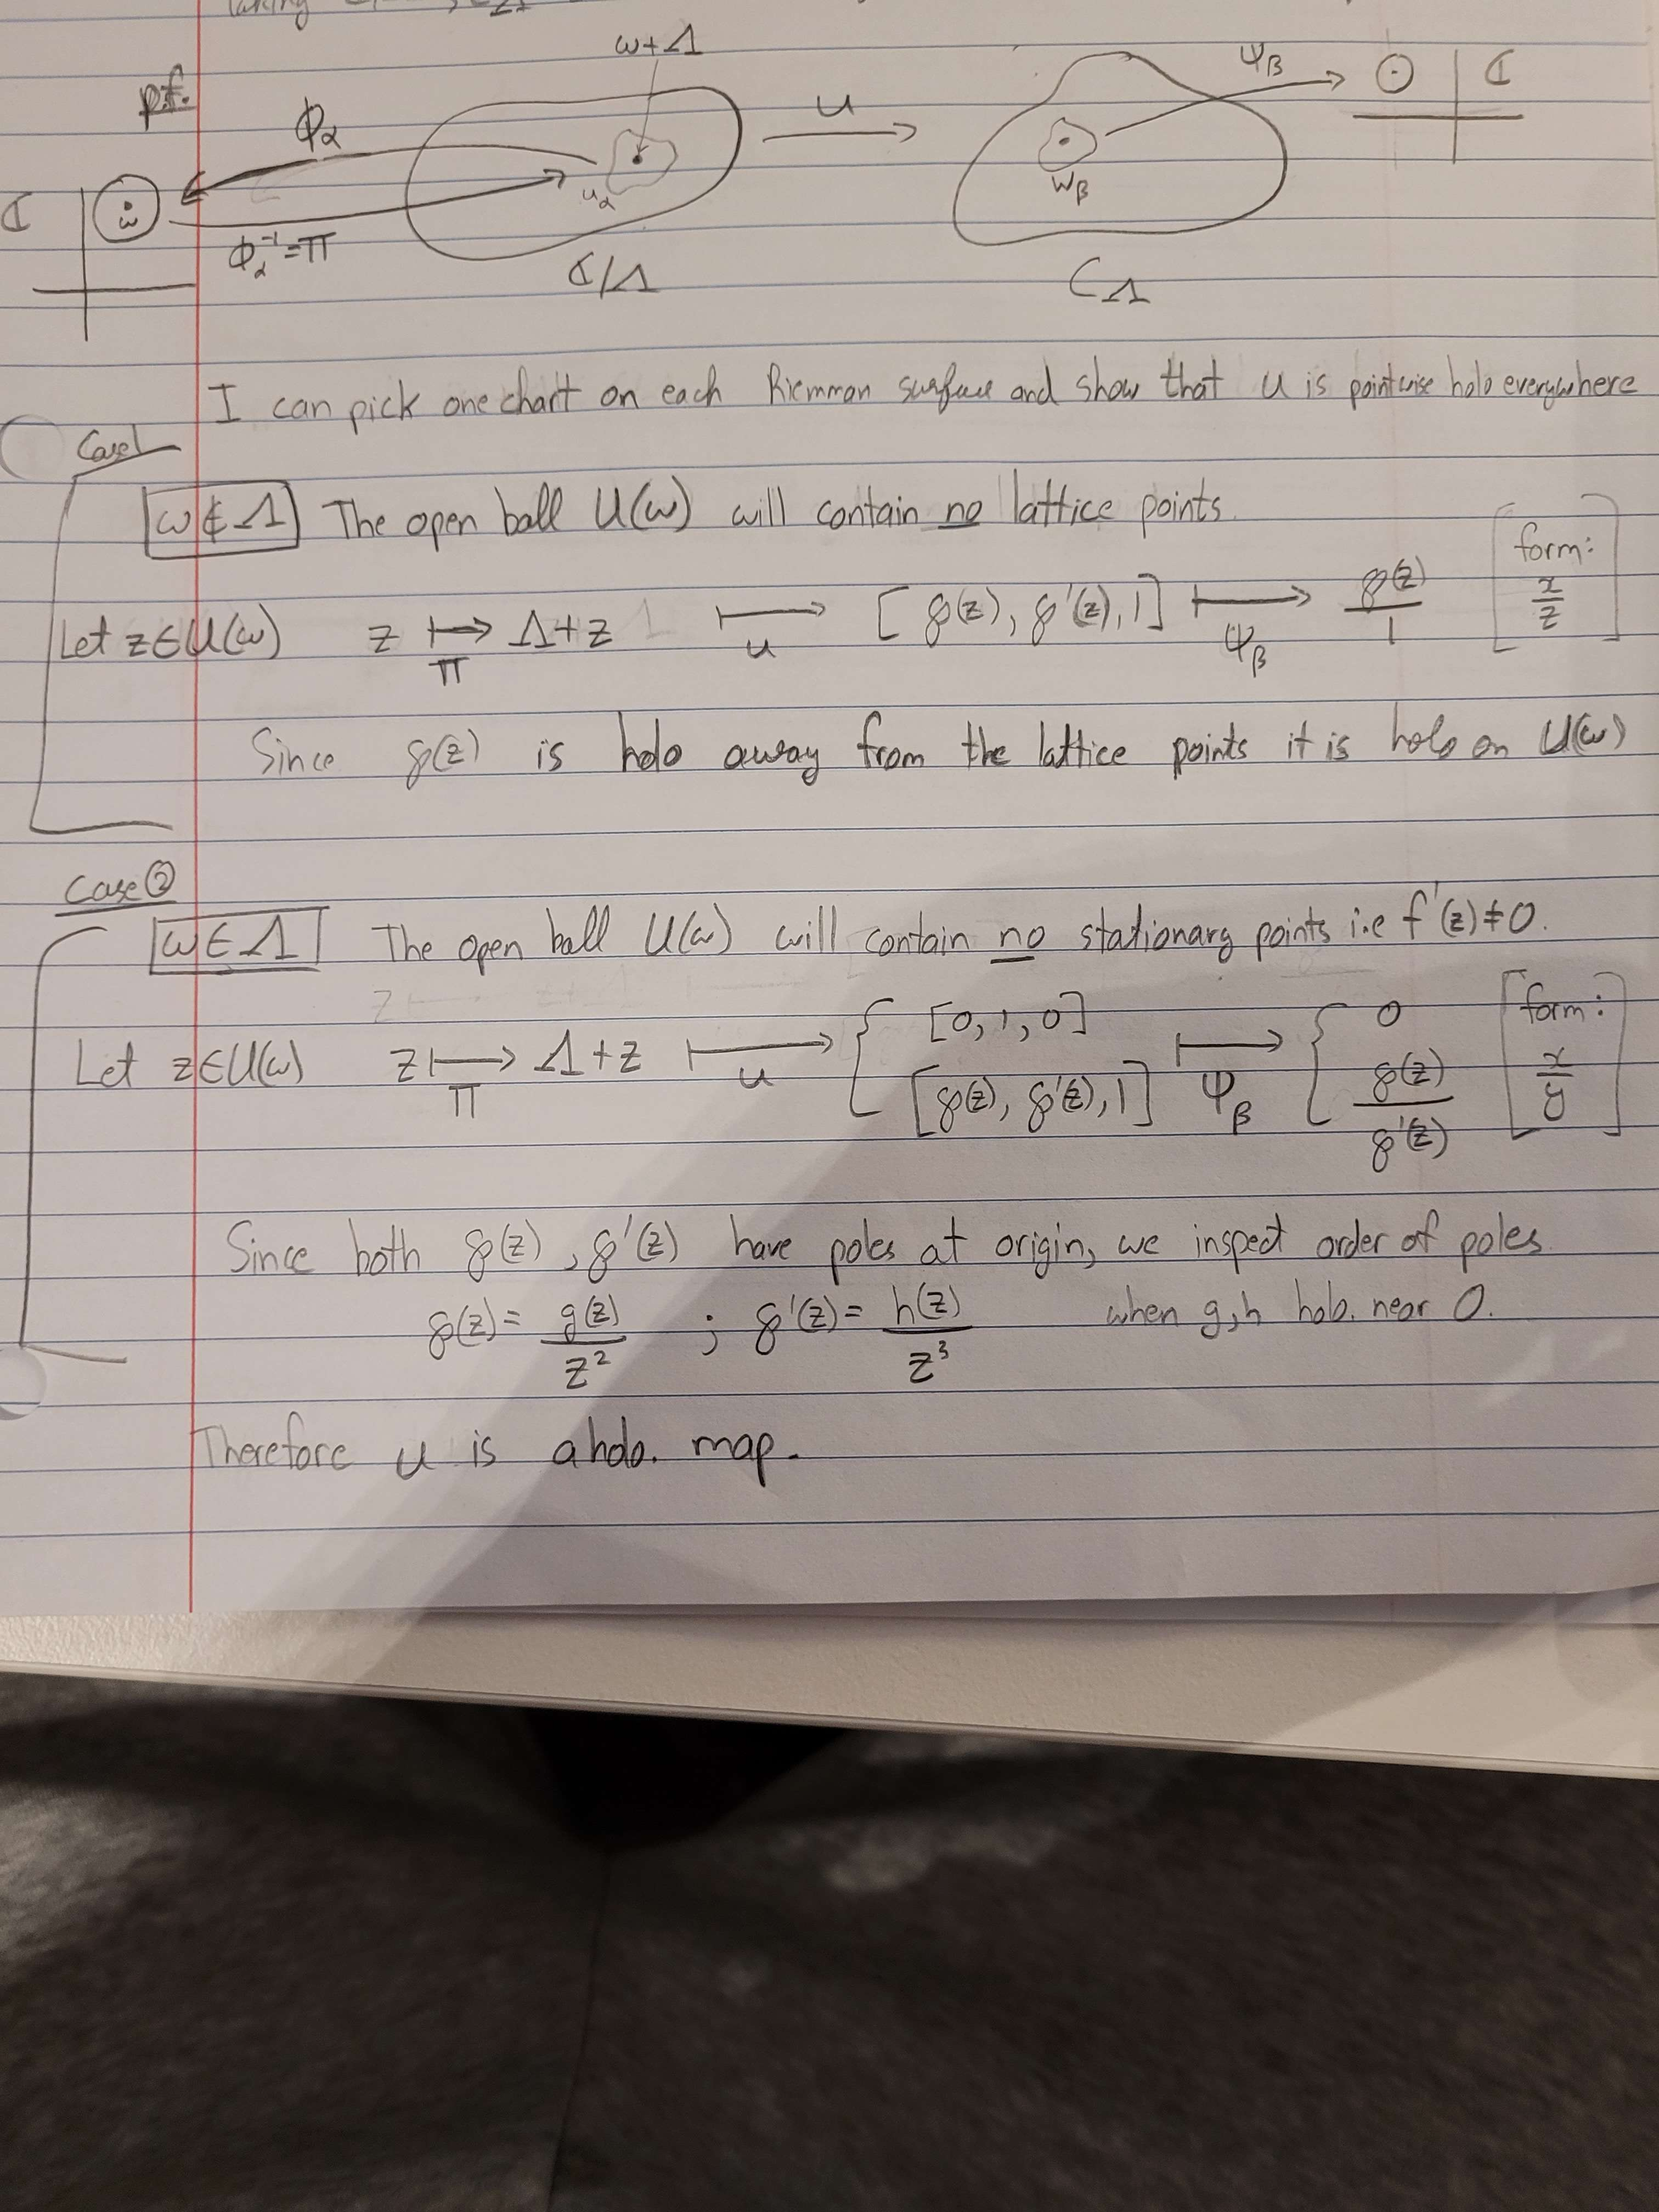 taking
ω+Λ
pf.
Φα
u
Ψβ
ℂ
ℂ
ω
uα
Wβ
Φα⁻¹=π
ℂ/Λ
CΛ
I can pick one chart on each Riemman surface and show that u is pointwise holo everywhere
Case 1
ω∉Λ The open ball U(ω) will contain no lattice points.
Let z∈U(ω) z ↦ Λ+z ↦ [℘(z), ℘'(z), 1] ↦ ℘(z)/1 [form: x/z]
π u Ψβ
Since ℘(z) is holo away from the lattice points it is holo on U(ω)
Case ②
ω∈Λ The open ball U(ω) will contain no stationary points i.e f'(z)≠0.
Let z∈U(ω) z ↦ Λ+z ↦ { [0,1,0] [℘(z), ℘'(z), 1] ↦ { 0 ℘(z)/℘'(z) [form: x/y]
π u Ψβ
Since both ℘(z), ℘'(z) have poles at origin, we inspect order of poles.
℘(z)= g(z)/z² ; ℘'(z)= h(z)/z³ when g,h holo. near 0.
Therefore u is a holo. map.